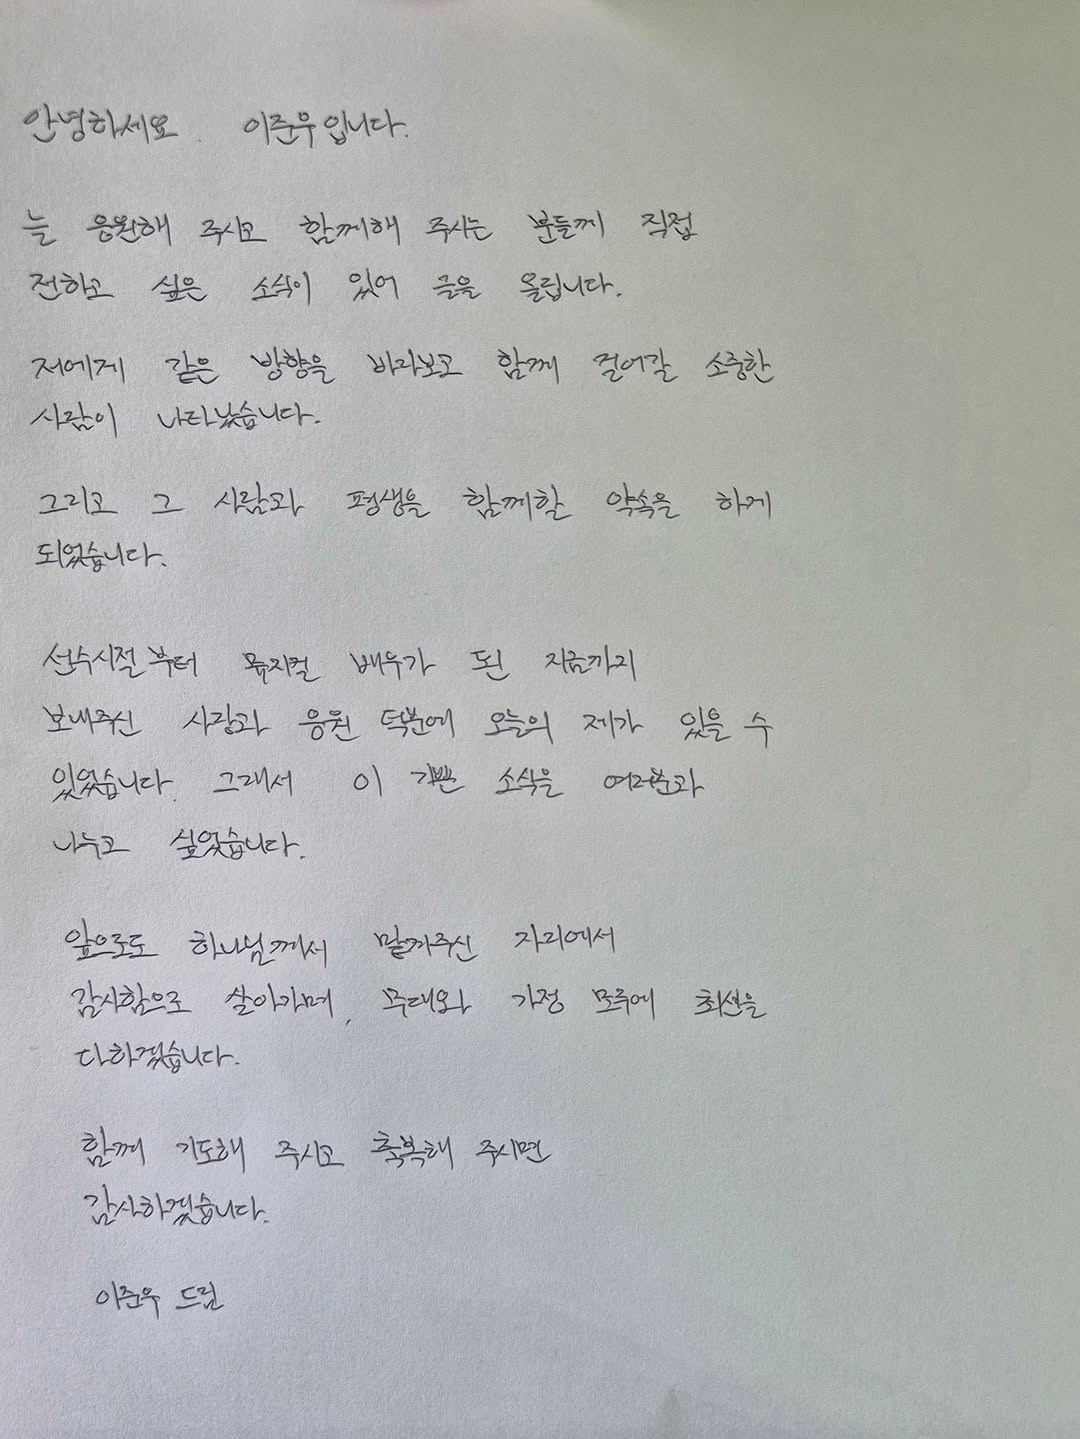 안녕하세요. 이준우입니다.
늘 응원해 주시고 함께해 주시는 분들께 직접
전하고 싶은 소식이 있어 글을 올립니다.
저에게 같은 방향을 바라보고 함께 걸어갈 소중한
사람이 나타났습니다.
그리고 그 사람과 평생을 함께할 약속을 하게
되었습니다.
선수시절부터 뮤지컬 배우가 된 지금까지
보내주신 사랑과 응원 덕분에 오늘의 제가 있을 수
있었습니다. 그래서 이 기쁜 소식을 여러분과
나누고 싶었습니다.
앞으로도 하나님께서 맡겨주신 자리에서
감사함으로 살아가며, 무대와 가정 모두에 최선을
다하겠습니다.
함께 기도해 주시고 축복해 주시면
감사하겠습니다.
이준우 드림